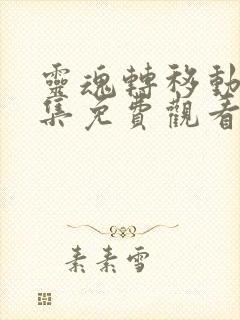 靈魂轉移動
集免費觀看
素素雪